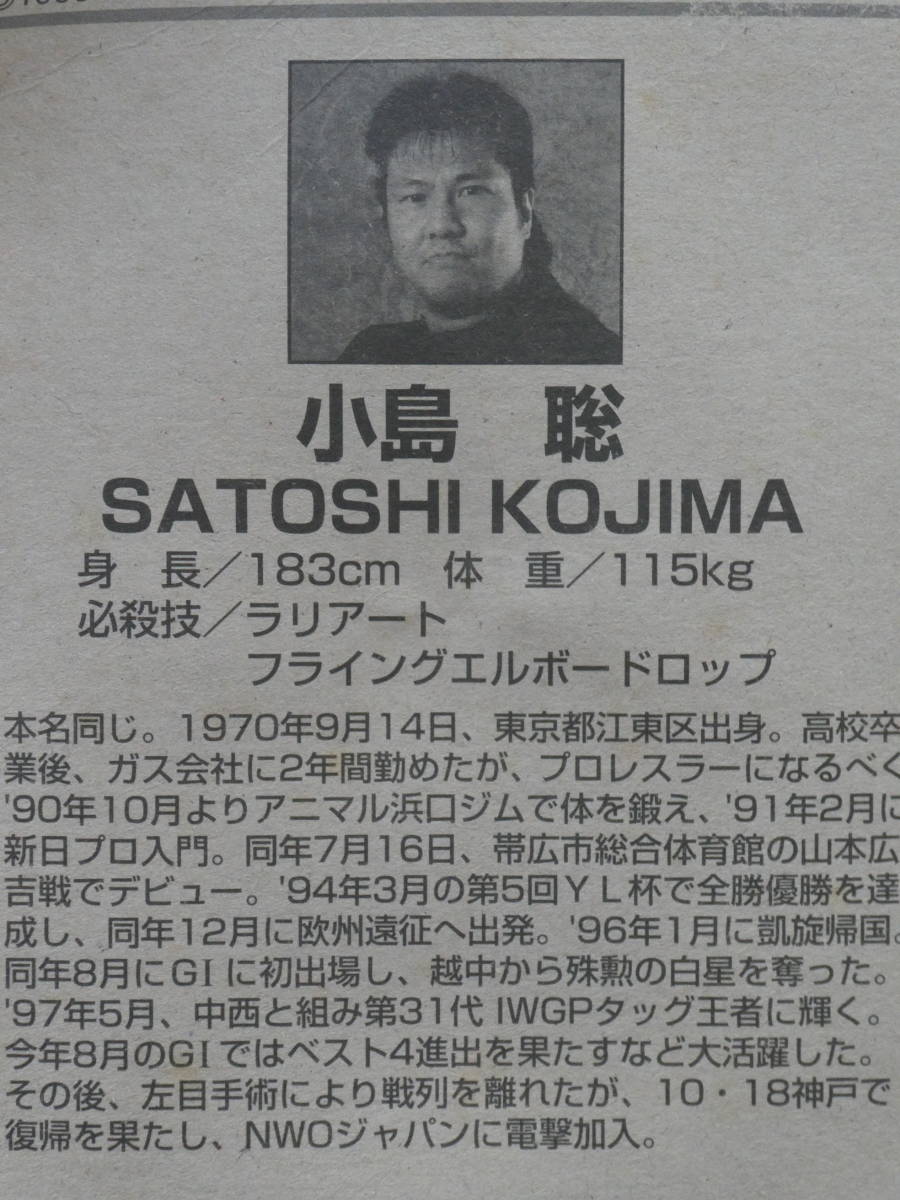 小島　聡
SATOSHI KOJIMA
身　長／183cm　体　重／115kg
必殺技／ラリアート
フライングエルボードロップ
本名同じ。1970年9月14日、東京都江東区出身。高校卒
業後、ガス会社に2年間勤めたが、プロレスラーになるべく
'90年10月よりアニマル浜口ジムで体を鍛え、'91年2月に
新日プロ入門。同年7月16日、帯広市総合体育館の山本広
吉戦でデビュー。'94年3月の第5回ＹＬ杯で全勝優勝を達
成し、同年12月に欧州遠征へ出発。'96年1月に凱旋帰国。
同年8月にGIに初出場し、越中から殊勲の白星を奪った。
'97年5月、中西と組み第31代 IWGPタッグ王者に輝く。
今年8月のGIではベスト4進出を果たすなど大活躍した。
その後、左目手術により戦列を離れたが、10・18神戸で
復帰を果たし、NWOジャパンに電撃加入。